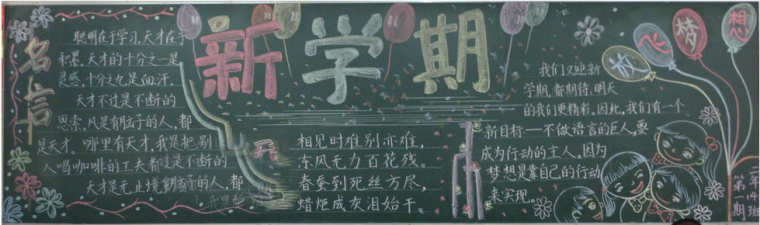 名言
聪明在于学习,天才在于
积累。天才的十分之一是
灵感,十分之九是血汗。
天才不过是不断的
思索,凡是有脑子的人,都
是天才。哪里有天才,我是把别
人喝咖啡的工夫都
不断的
天才是无止境
的人,都
新学期
相见时难别亦难,
东风无力百花残。
春蚕到死丝方尽,
蜡炬成灰泪始干
我们又迎新
学期,新期待,明天
的我们更精彩,因此,我们有一个
新目标——不做语言的巨人,要
成为行动的主人,因为
梦想是靠自己的行动
来实现。
放飞梦想
二年
班
第
期